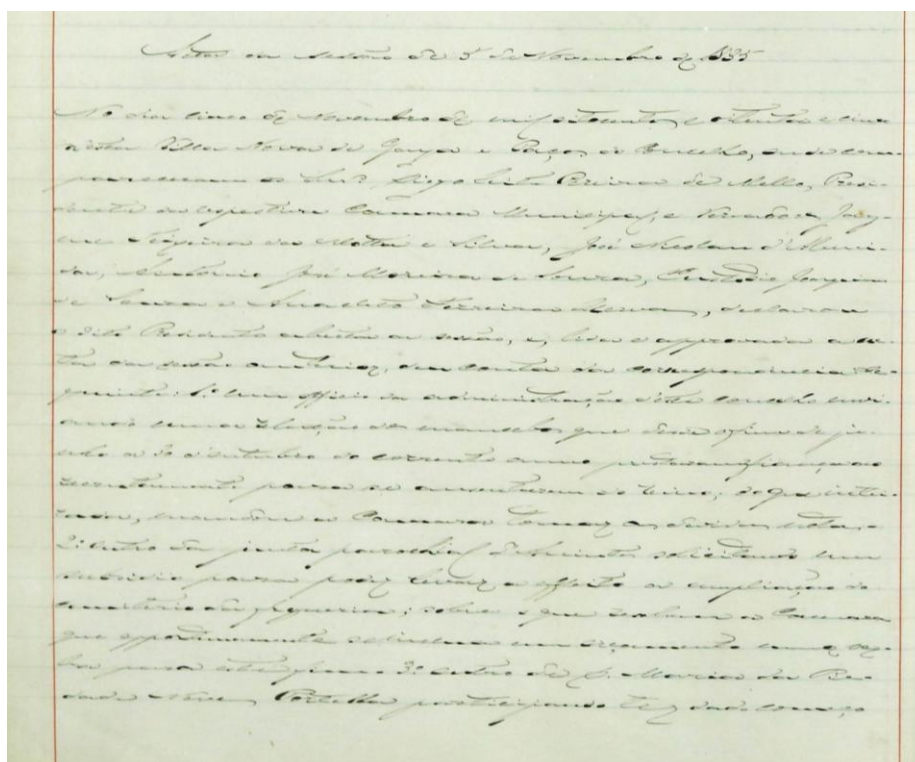 Acta da sessão de 5 de Novembro de 1885
No dia cinco de Novembro de mil oitocentos e oitenta e cinco
n'esta Villa Nova de Gaya e Paços do Concelho, onde com-
pareceram os Snrs. Diogo Leite Pereira de Mello, Presi-
dente da respectiva Camara Municipal, e Vereadores Joaq-
Siqueira da Motta e Silva, José Nicolau d'Almei-
da, Antonio José Moreira de Souza, Custodio Joaquim
de Souza e Anacleto Ferreira, declarou
o dito Presidente aberta a sessão, e, lida e approvada a ac-
ta da sessão anterior, deu conta da correspondencia se-
guinte: 1.º um officio da administração d'este concelho envi-
ando uma relação de mancebos que desde o fim de ju-
nho a 20 d'outubro do corrente anno prestaram fiança ao
recrutamento para se ausentarem do reino; do que intei-
rada, mandou a Camara tomar as devidas notas.
2.º outro da junta parochial d'Arcozello solicitando um
subsidio para poder levar a effeito a ampliação do
cemiterio da freguezia; sobre o que resolveu a Camara
que opportunamente se incluisse em orçamento uma ver-
ba para este fim. 3.º outro de D. Maria da Pie-
dade Neves Portella participando ter dado começo